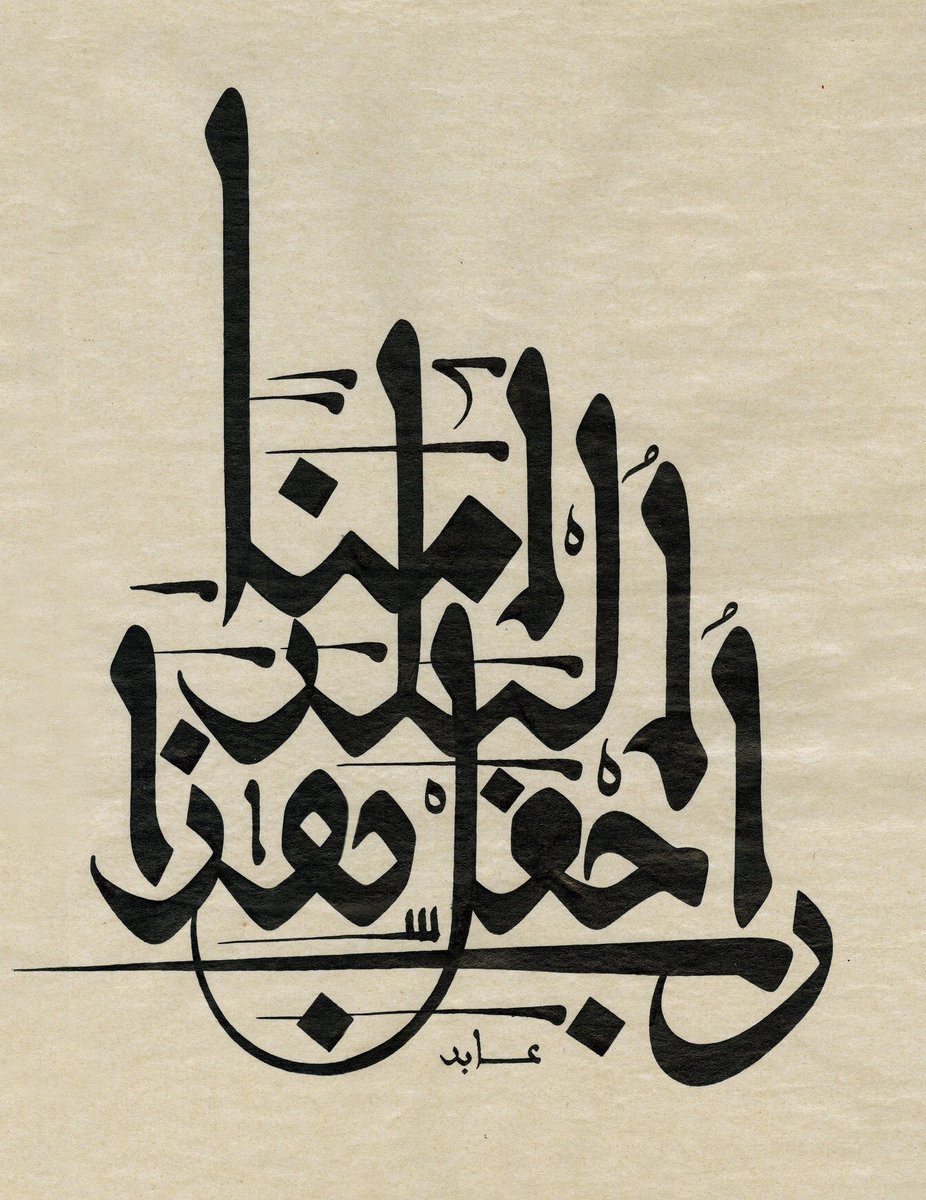 رَبِّ
اجْعَلْ هَٰذَا
الْبَلَدَ
آمِنًا
عابد